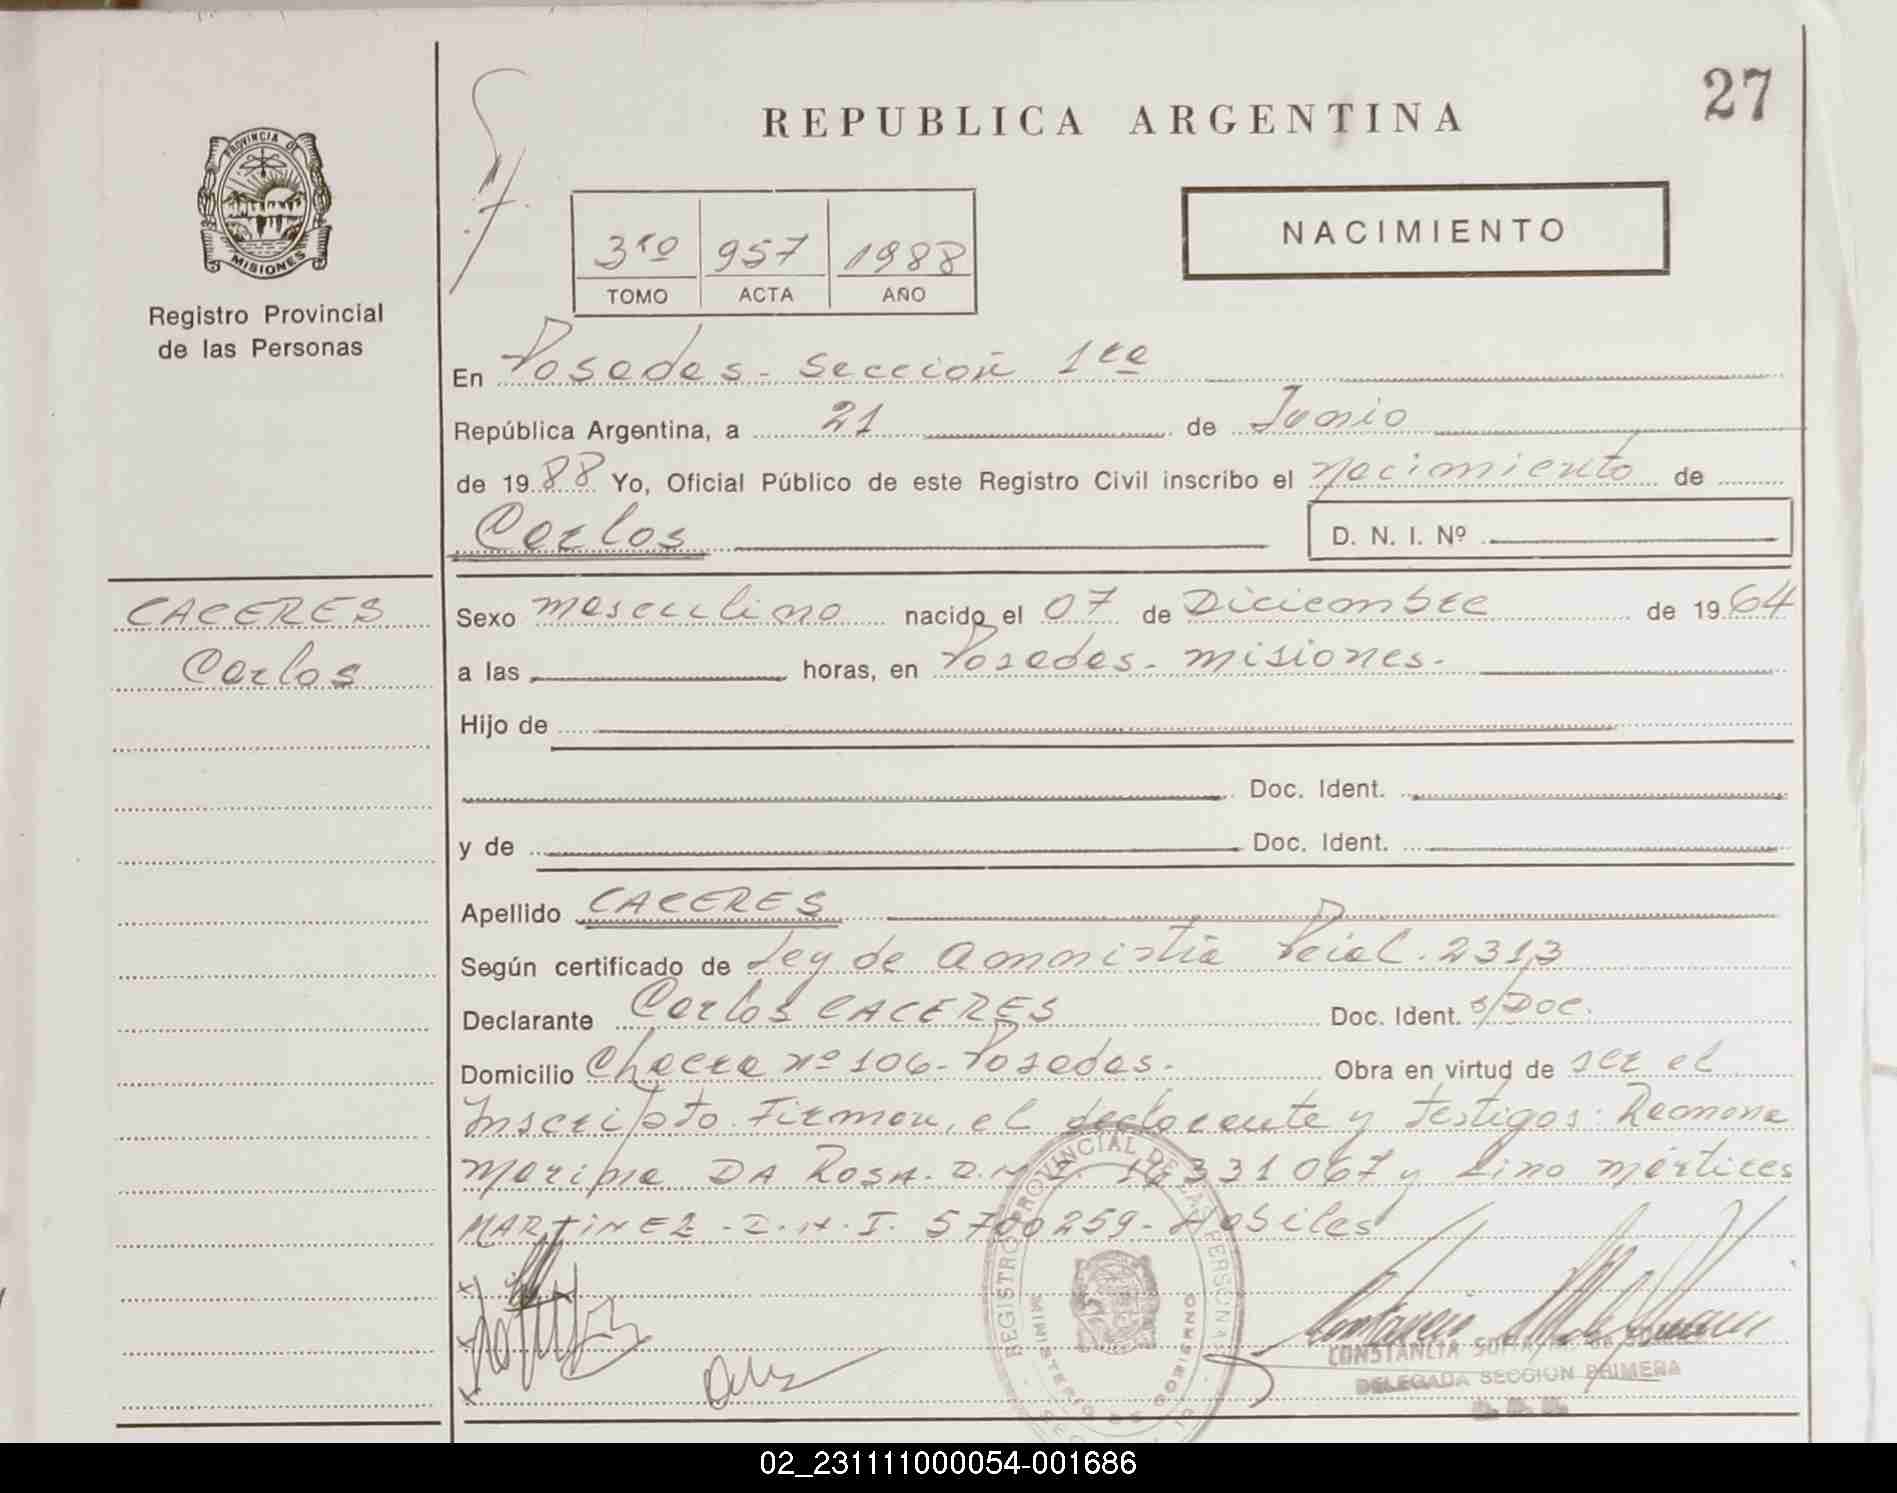 27
REPUBLICA ARGENTINA
PROVINCIA DE
MISIONES
Registro Provincial
de las Personas
NACIMIENTO
3ro 957 1988
TOMO ACTA AÑO
En Posadas - Sección 1ra
República Argentina, a 21 de Junio
de 1988 Yo, Oficial Público de este Registro Civil inscribo el nacimiento de
Carlos D. N. I. Nº
CACERES
Carlos
Sexo masculino nacido el 07 de Diciembre de 1964
a las horas, en Posadas - misiones.
Hijo de
Doc. Ident.
y de Doc. Ident.
Apellido CACERES
Según certificado de Ley de Amnistía Pcial. 2313
Declarante Carlos CACERES Doc. Ident. s/Doc.
Domicilio Chacra nº 106 - Posadas. Obra en virtud de ser el
Inscripto. Firman, el declarante y testigos: Ramona
Marina DA ROSA. D.N.I. 331067 y Lino
MARTINEZ - D.N.I. 5700259 - Habiles
REGISTRO PROVINCIAL DE LAS PERSONAS
MINISTERIO DE GOBIERNO
CONSTANCIA
DELEGADA SECCION PRIMERA
02_231111000054-001686